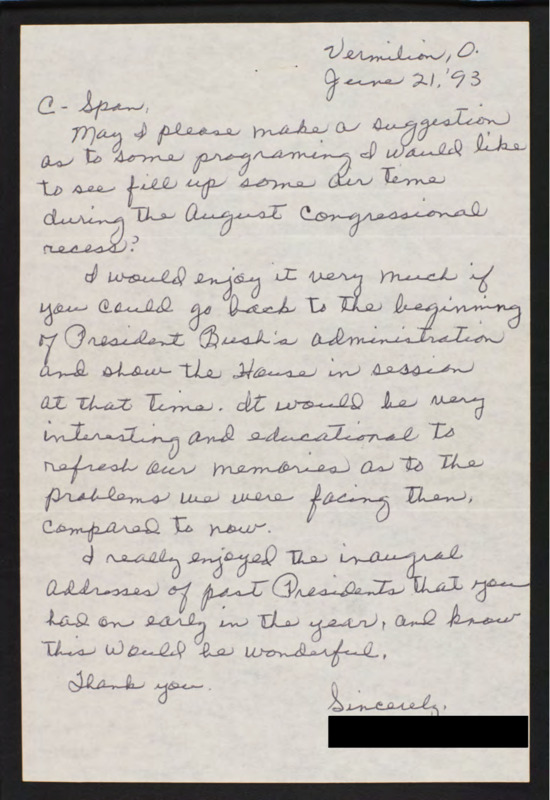 Vermilion, O.
June 21, '93
C-Span,
May I please make a suggestion
as to some programing I would like
to see fill up some air time
during the August Congressional
recess?
I would enjoy it very much if
you could go back to the beginning
of President Bush's administration
and show the House in session
at that time. It would be very
interesting and educational to
refresh our memories as to the
problems we were facing then,
compared to now.
I really enjoyed the inaugral
addresses of past Presidents that you
had on early in the year, and know
this would be wonderful.
Thank you.
Sincerely,